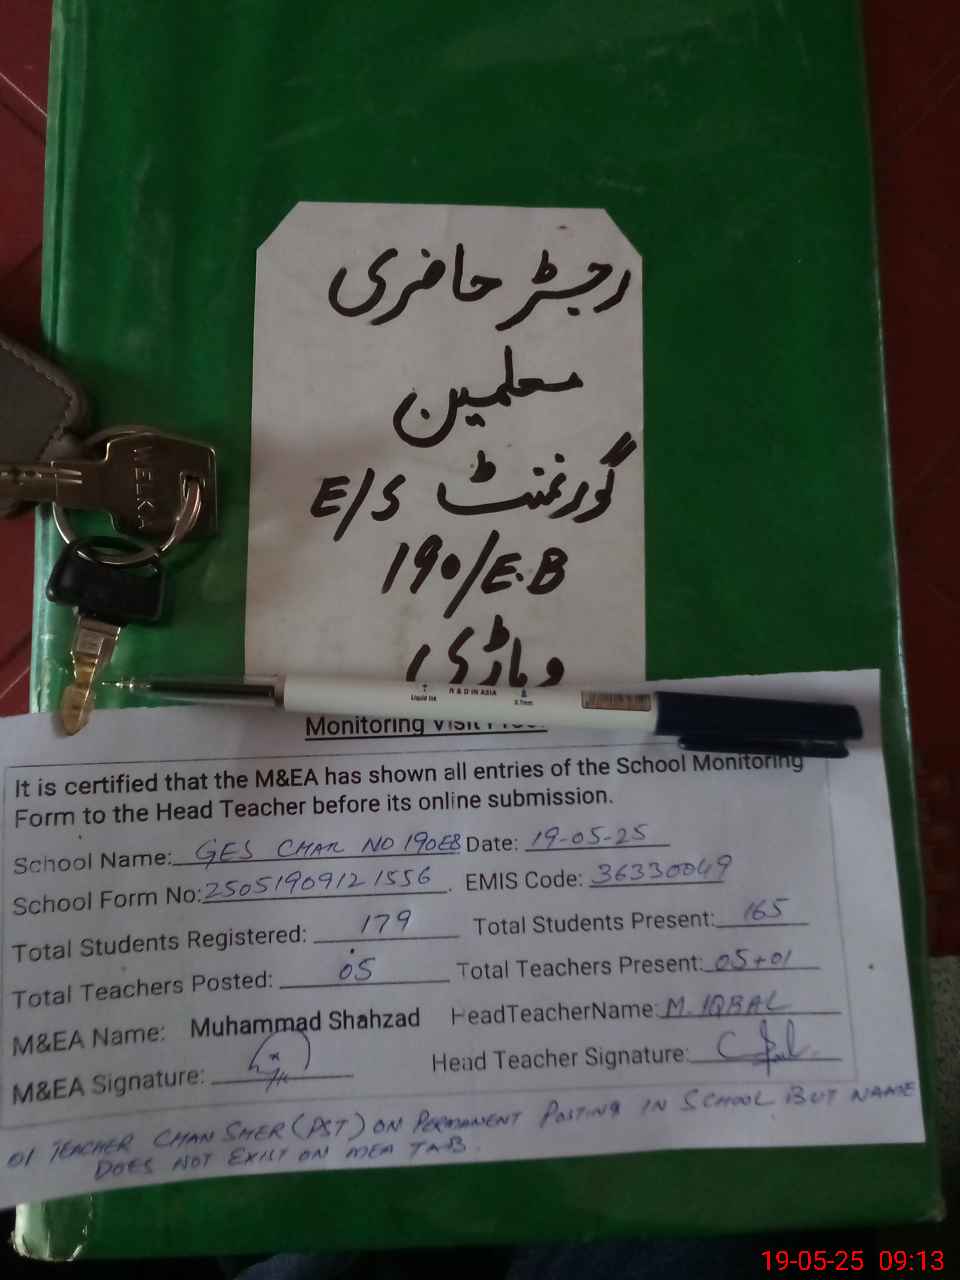 رجسٹر حاضری
معلمین
گورنمنٹ E/S
190/E.B
وہاڑی
WELKA
Liquid Ink
R & D IN ASIA
0.7mm
Monitoring Visit
It is certified that the M&EA has shown all entries of the School Monitoring
Form to the Head Teacher before its online submission.
School Name: GES CHAK NO 190EB Date: 19-05-25
School Form No: 25051909121556. EMIS Code: 36330049
Total Students Registered: 179 Total Students Present: 165
Total Teachers Posted: 05 Total Teachers Present: 05+01
M&EA Name: Muhammad Shahzad HeadTeacherName: M. IQBAL
M&EA Signature: Head Teacher Signature:
01 TEACHER CHAN SHER (PST) ON PERMANENT POSTING IN SCHOOL BUT NAME
DOES NOT EXIST ON MEA TAB.
19-05-25 09:13